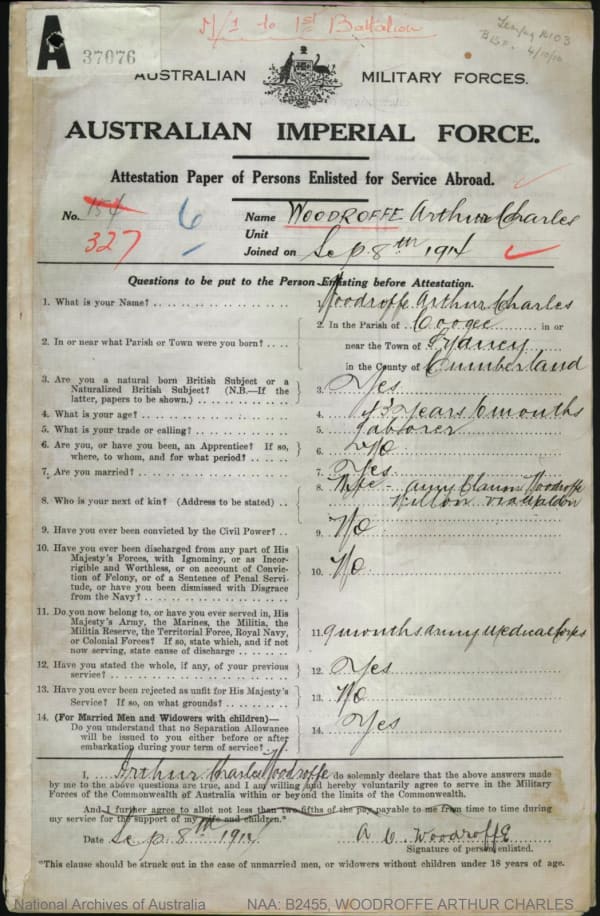 R/1 to 1st Battalion
A
37076
4/10/10
AUSTRALIAN MILITARY FORCES.
AUSTRALIAN IMPERIAL FORCE.
Attestation Paper of Persons Enlisted for Service Abroad.
No. 154 6 Name WOODROFFE Arthur Charles
327 Unit
Joined on Sep 8th 1914
Questions to be put to the Person Enlisting before Attestation.
1. What is your Name? 1. Woodroffe Arthur Charles
2. In or near what Parish or Town were you born? 2. In the Parish of Coogee in or
near the Town of Sydney
in the County of Cumberland
3. Are you a natural born British Subject or a
Naturalized British Subject? (N.B.—If the
latter, papers to be shown.) 3. Yes
4. What is your age? 4. 43 years 6 months
5. What is your trade or calling? 5. Laborer
6. Are you, or have you been, an Apprentice? If so,
where, to whom, and for what period? 6. No
7. Are you married? 7. Yes
8. Who is your next of kin? (Address to be stated) 8. Wife - Woodroffe
via Maldon
9. Have you ever been convicted by the Civil Power? 9. No
10. Have you ever been discharged from any part of His
Majesty's Forces, with Ignominy, or as Incor-
rigible and Worthless, or on account of Convic-
tion of Felony, or of a Sentence of Penal Servi-
tude, or have you been dismissed with Disgrace
from the Navy? 10. No
11. Do you now belong to, or have you ever served in, His
Majesty's Army, the Marines, the Militia, the
Militia Reserve, the Territorial Force, Royal Navy,
or Colonial Forces? If so, state which, and if not
now serving, state cause of discharge 11. 9 months Army Medical Corps
12. Have you stated the whole, if any, of your previous
service? 12. Yes
13. Have you ever been rejected as unfit for His Majesty's
Service? If so, on what grounds? 13. No
14. (For Married Men and Widowers with children)—
Do you understand that no Separation Allowance
will be issued to you either before or after
embarkation during your term of service? 14. Yes
I, Arthur Charles Woodroffe do solemnly declare that the above answers made
by me to the above questions are true, and I am willing and hereby voluntarily agree to serve in the Military
Forces of the Commonwealth of Australia within or beyond the limits of the Commonwealth.
And I further agree to allot not less than two fifths of the pay payable to me from time to time during
my service for the support of my wife and children.*
Date Sep 8th 1914 A C. Woodroffe
Signature of person enlisted.
*This clause should be struck out in the case of unmarried men, or widowers without children under 18 years of age.
National Archives of Australia NAA: B2455, WOODROFFE ARTHUR CHARLES